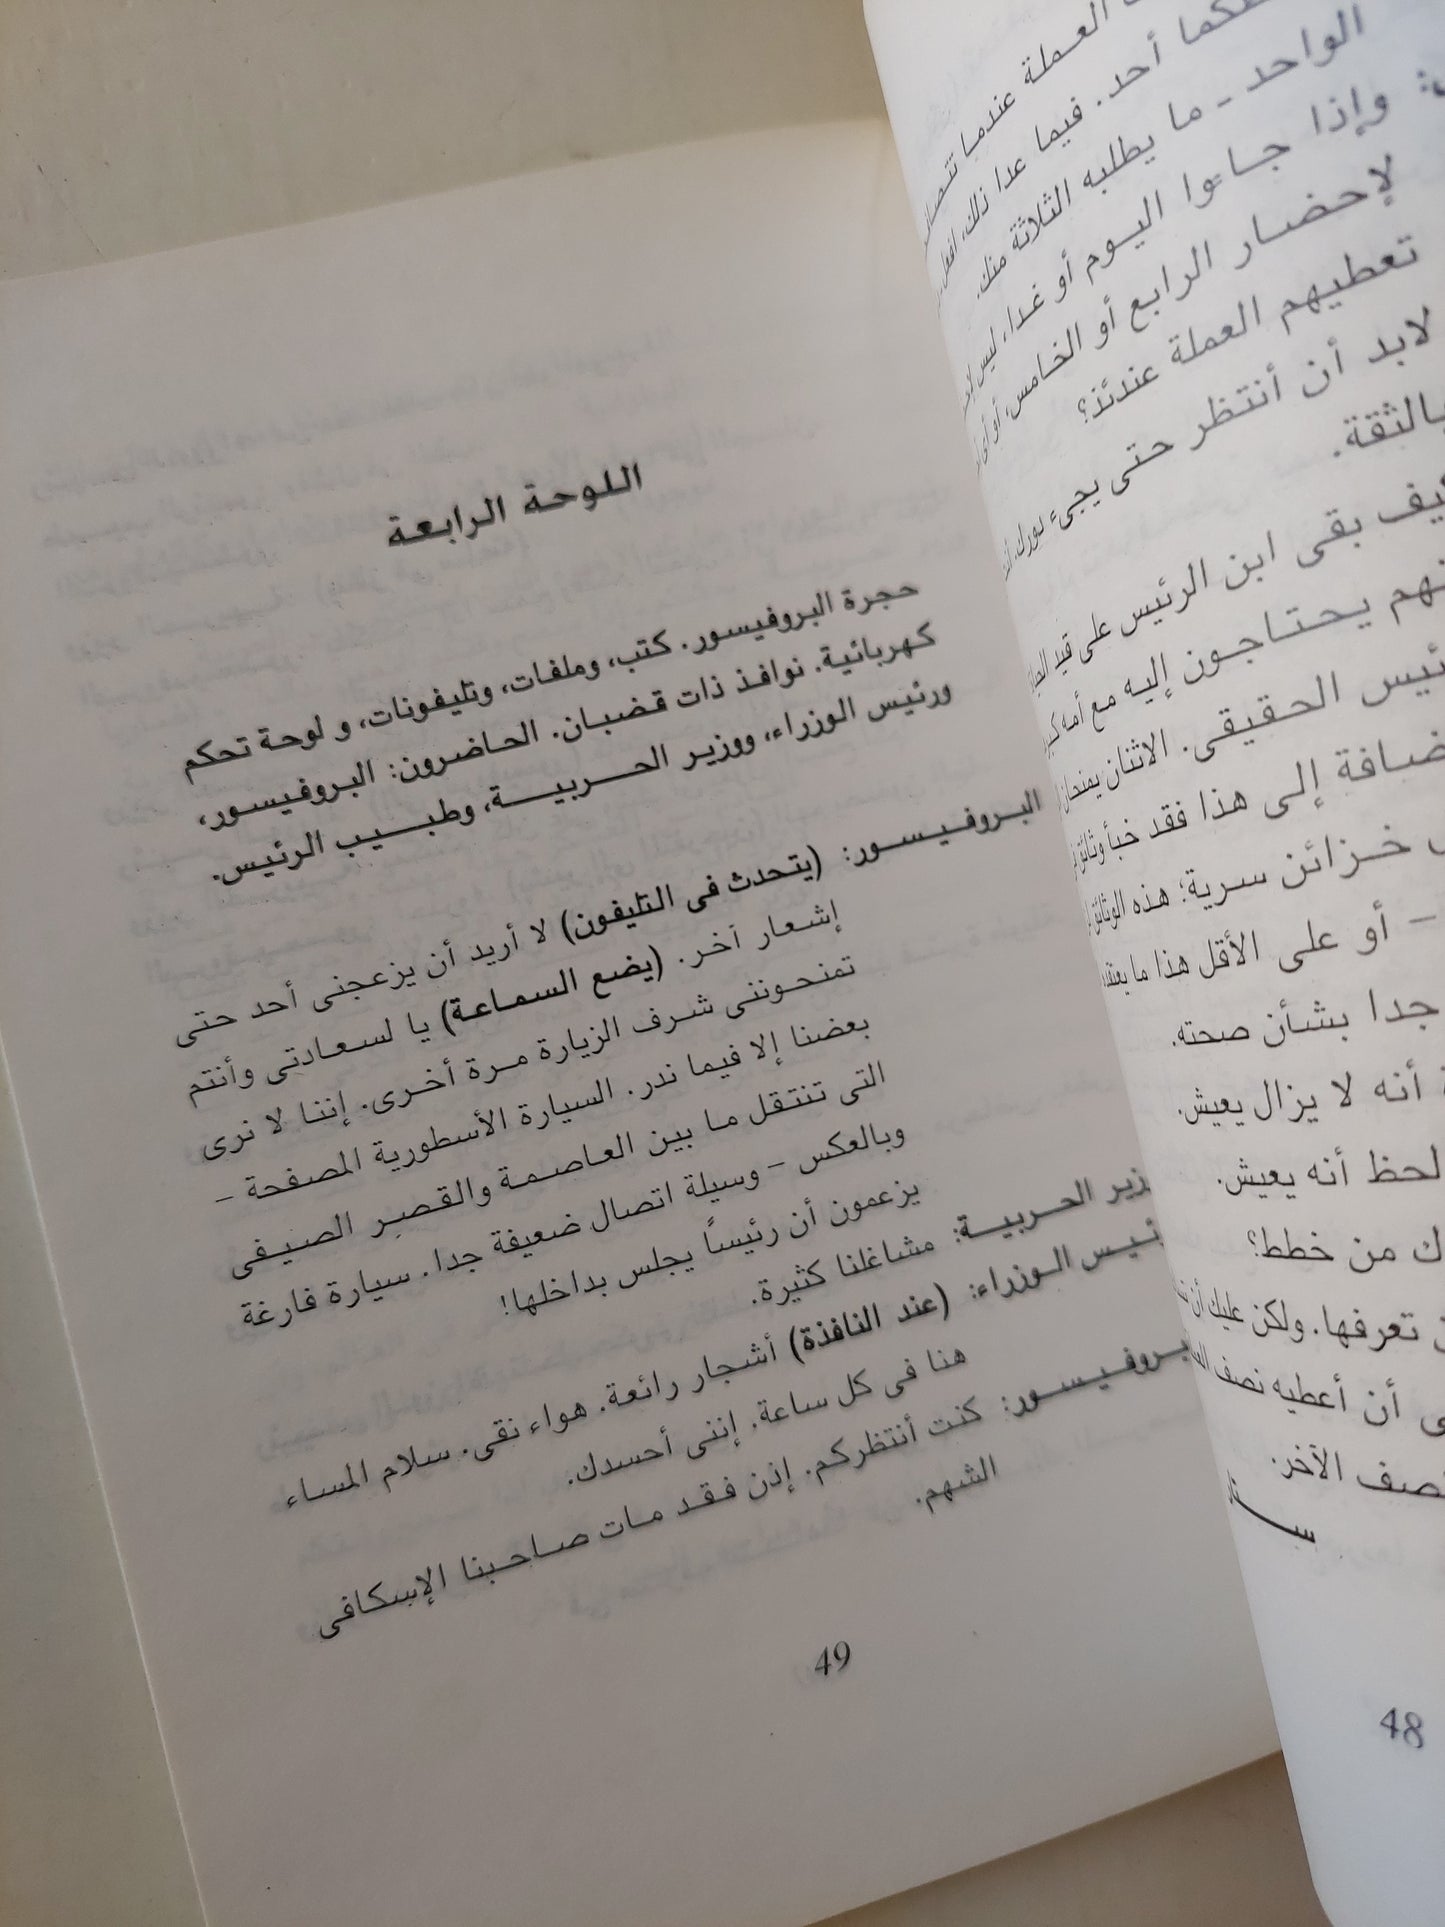 العملة عندما
أحد. فيما عدا ذلك، افعل
الواحد - ما يطلبه الثلاثة منك.
وإذا جاءوا اليوم أو غدا، ليس
لإحضار الرابع أو الخامس، أو أى
تعطيهم العملة عندئذ؟
لابد أن أنتظر حتى يجىء
بالثقة.
كيف بقى ابن الرئيس على قيد
يحتاجون إليه مع أمه
الحقيقى. الاثنان
إلى هذا فقد خبأ وثائق
خزائن سرية؛ هذه الوثائق
- أو على الأقل هذا ما
جدا بشأن صحته.
أنه لا يزال يعيش.
لحظ أنه يعيش.
من خطط؟
تعرفها. ولكن عليك أن
أن أعطيه نصف
الآخر.
ستار
48
اللوحة الرابعة
حجرة البروفيسور. كتب، وملفات، وتليفونات، و لوحة تحكم
كهربائية. نوافذ ذات قضبان. الحاضرون: البروفيسور،
ورئيس الوزراء، ووزير الحربية، وطبيب الرئيس.
البروفيسور: (يتحدث فى التليفون) لا أريد أن يزعجنى أحد حتى
إشعار آخر. (يضع السماعة) يا لسعادتى وأنتم
تمنحوننى شرف الزيارة مرة أخرى. إننا لا نرى
بعضنا إلا فيما ندر. السيارة الأسطورية المصفحة -
التى تنتقل ما بين العاصمة والقصر الصيفى
وبالعكس - وسيلة اتصال ضعيفة جدا. سيارة فارغة
يزعمون أن رئيساً يجلس بداخلها!
وزير الحربية: مشاغلنا كثيرة.
رئيس الوزراء: (عند النافذة) أشجار رائعة. هواء نقى. سلام المساء
هنا فى كل ساعة. إننى أحسدك.
البروفيسور: كنت أنتظركم. إذن فقد مات صاحبنا الإسكافى
الشهم.
49